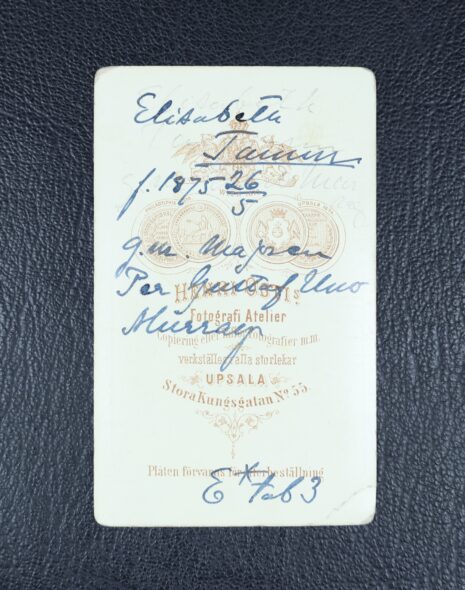 Elisabeth
Tamm
f. 1875 26/5
g.m. Majoren
Per Gustaf Uno
Murray
UPSALA
HENRI OSTIs
Fotografi Atelier
Copiering efter fotografier m.m.
verkställes i alla storlekar
UPSALA
Stora Kungsgatan No 55
Plåten förvaras för efterbeställning
E* tab 3